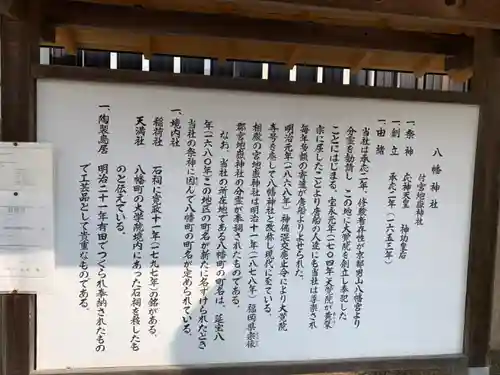 八幡神社
付 宮地嶽神社
一、祭神 応神天皇 神功皇后
一、創立 承応二年（一六五三年）
一、由緒
当社は承応二年、修験者存性が京都男山八幡宮より
分霊を勧請し、この地に大覚院を創立し奉祀した
ことにはじまる。宝永元年（一七〇四年）天覚院が黄檗
宗に属したことより唐船の人達にも当社は尊崇され
毎年多額の寄進が唐船よりよせられた。
明治元年（一八六八年）神佛混交廃止令により大覚院
号を廃して八幡神社と改称し現代に至っている。
相殿の宮地嶽神社は明治十一年（一八七八年）福岡県宗像
郡宮地嶽神社の分霊が奉祠されたものである。
なお、当社の所在地である八幡町の町名は、延宝八
年（一六八〇年）この地区の町名が新たに名ずけられたとき
当社の祭神に因んで八幡町の町名が定められている。
一、境内社
稲荷社 石祠に寛政十一年（一七九七年）の銘がある。
天満社 八幡町の大学院境内にあった石祠を移したも
のと伝えている。
一、陶製鳥居 明治二十一年有田でつくられ奉納されたもの
で工芸品として貴重なものである。